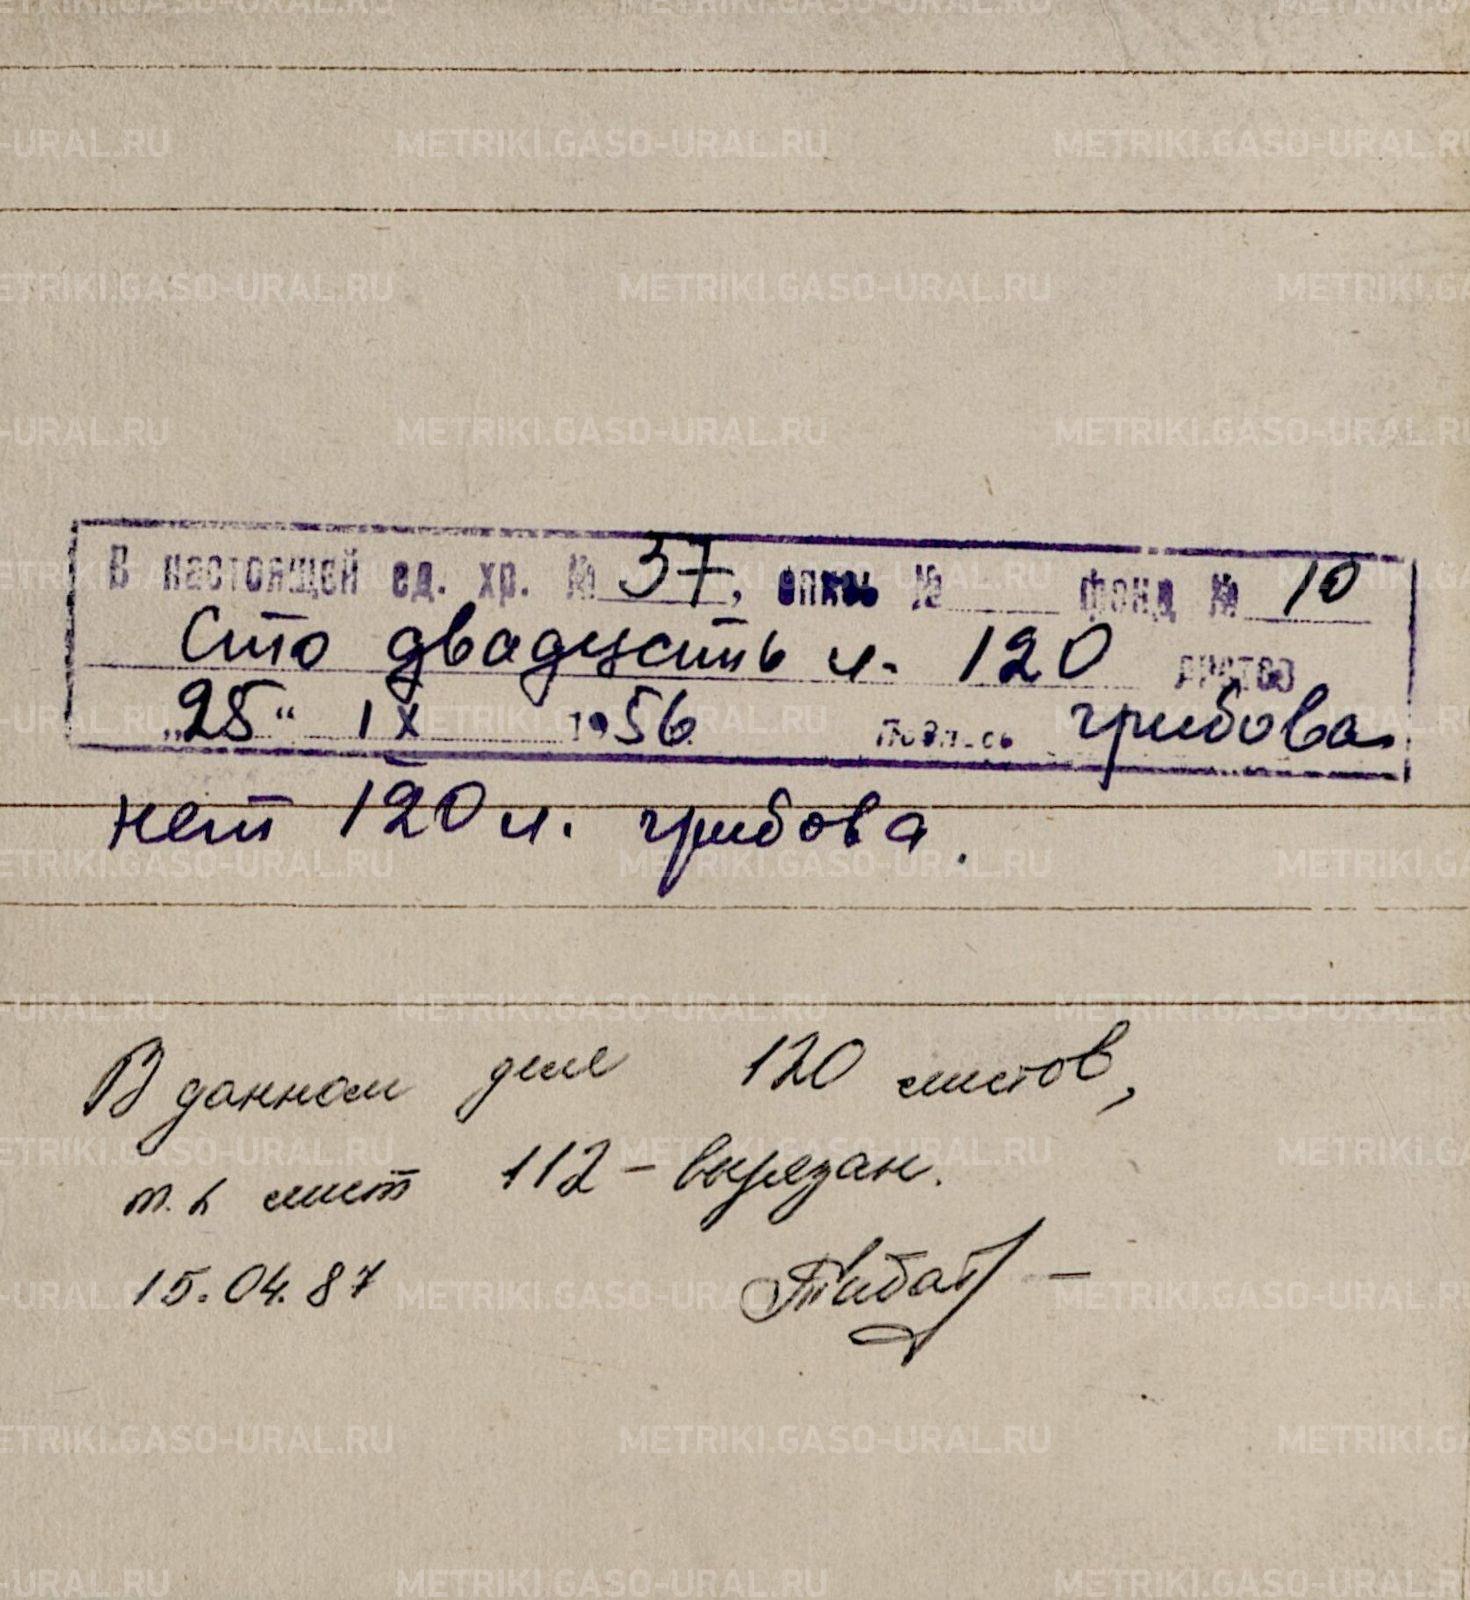 В настоящей ед. хр. № 37, опись № фонд № 10
Сто двадцать л. 120 листов
„25“ IX 1956 Подпись Грибова
нет 120 л. Грибова.
В данном деле 120 листов,
т. к лист 112 – вырезан.
15.04.87
METRIKI.GASO-URAL.RU